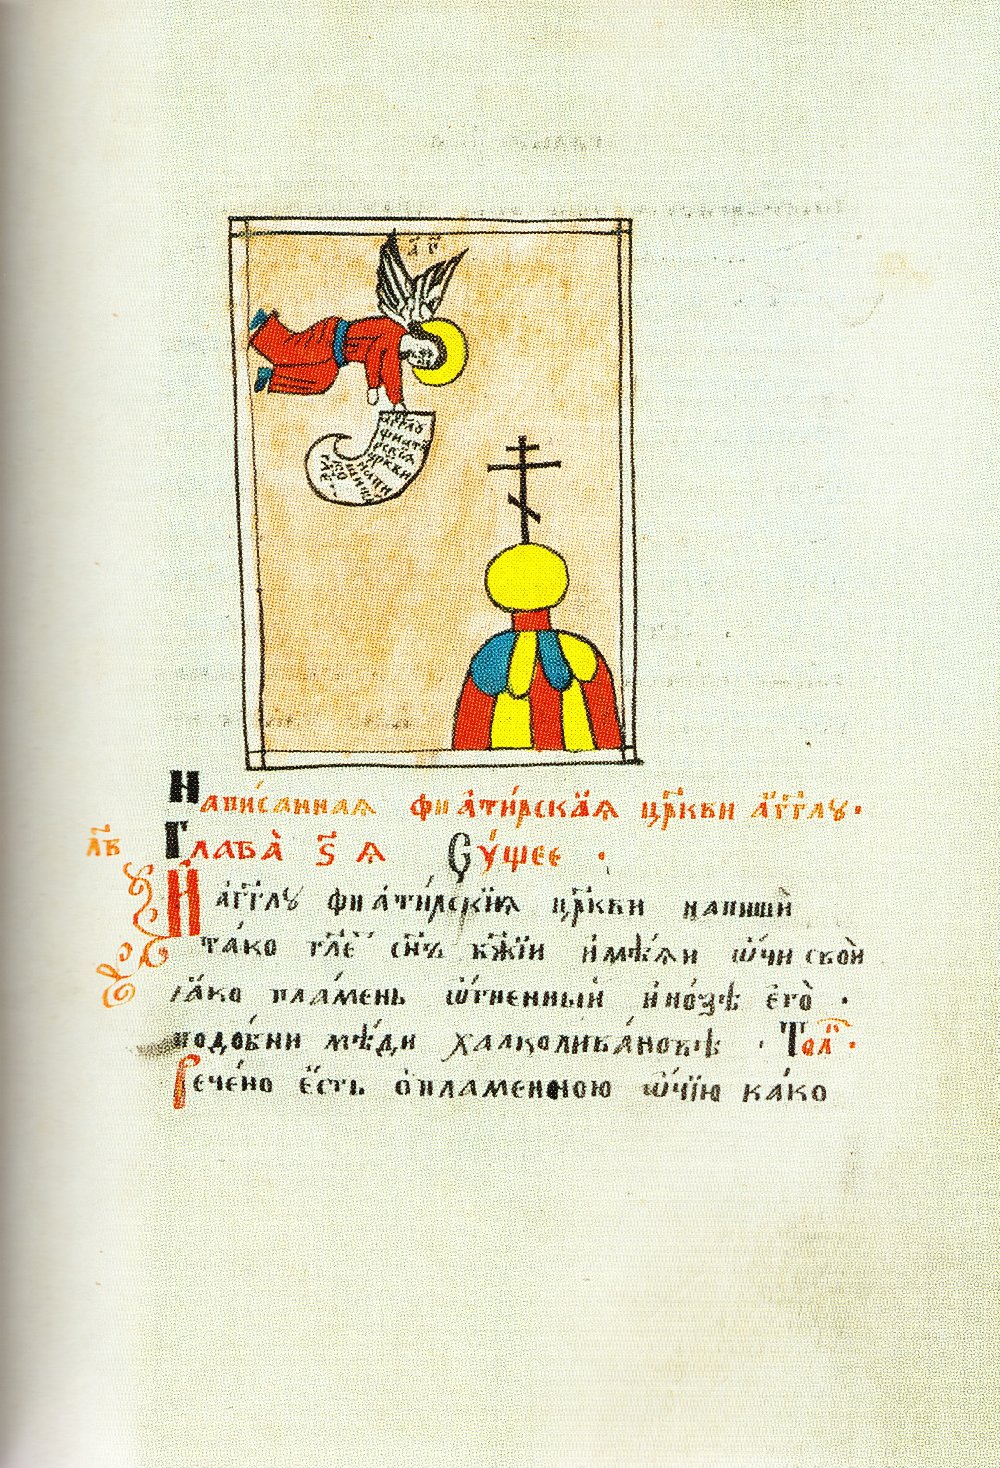 а҃г
а҃гг҃лꙋ
фиати
рскїѧ
цр҃кви
напи
ши
Написа́нная фиати́рскаѧ цр҃кви а҆́гг҃лꙋ·
Глава̀ ѕ҃ ѧ Сꙋ́щее ·
л҃в
И҆ а҆́гг҃лꙋ фиати́рскїѧ цр҃кви напишѝ
та́ко гл҃етъ сн҃ъ бж҃їи и҆мѣ́ѧи ѡ҆́чи своѝ
ꙗ҆́ко пла́мень ѡ҆́гненный и҆ но́зѣ є҆гѡ̀ ·
подо́бни мѣ́ди халколива́новѣ · Тол҃ ·
Рече́но є҆́сть ѻ҆ пламенною ѡ҆́чїю ка́ко